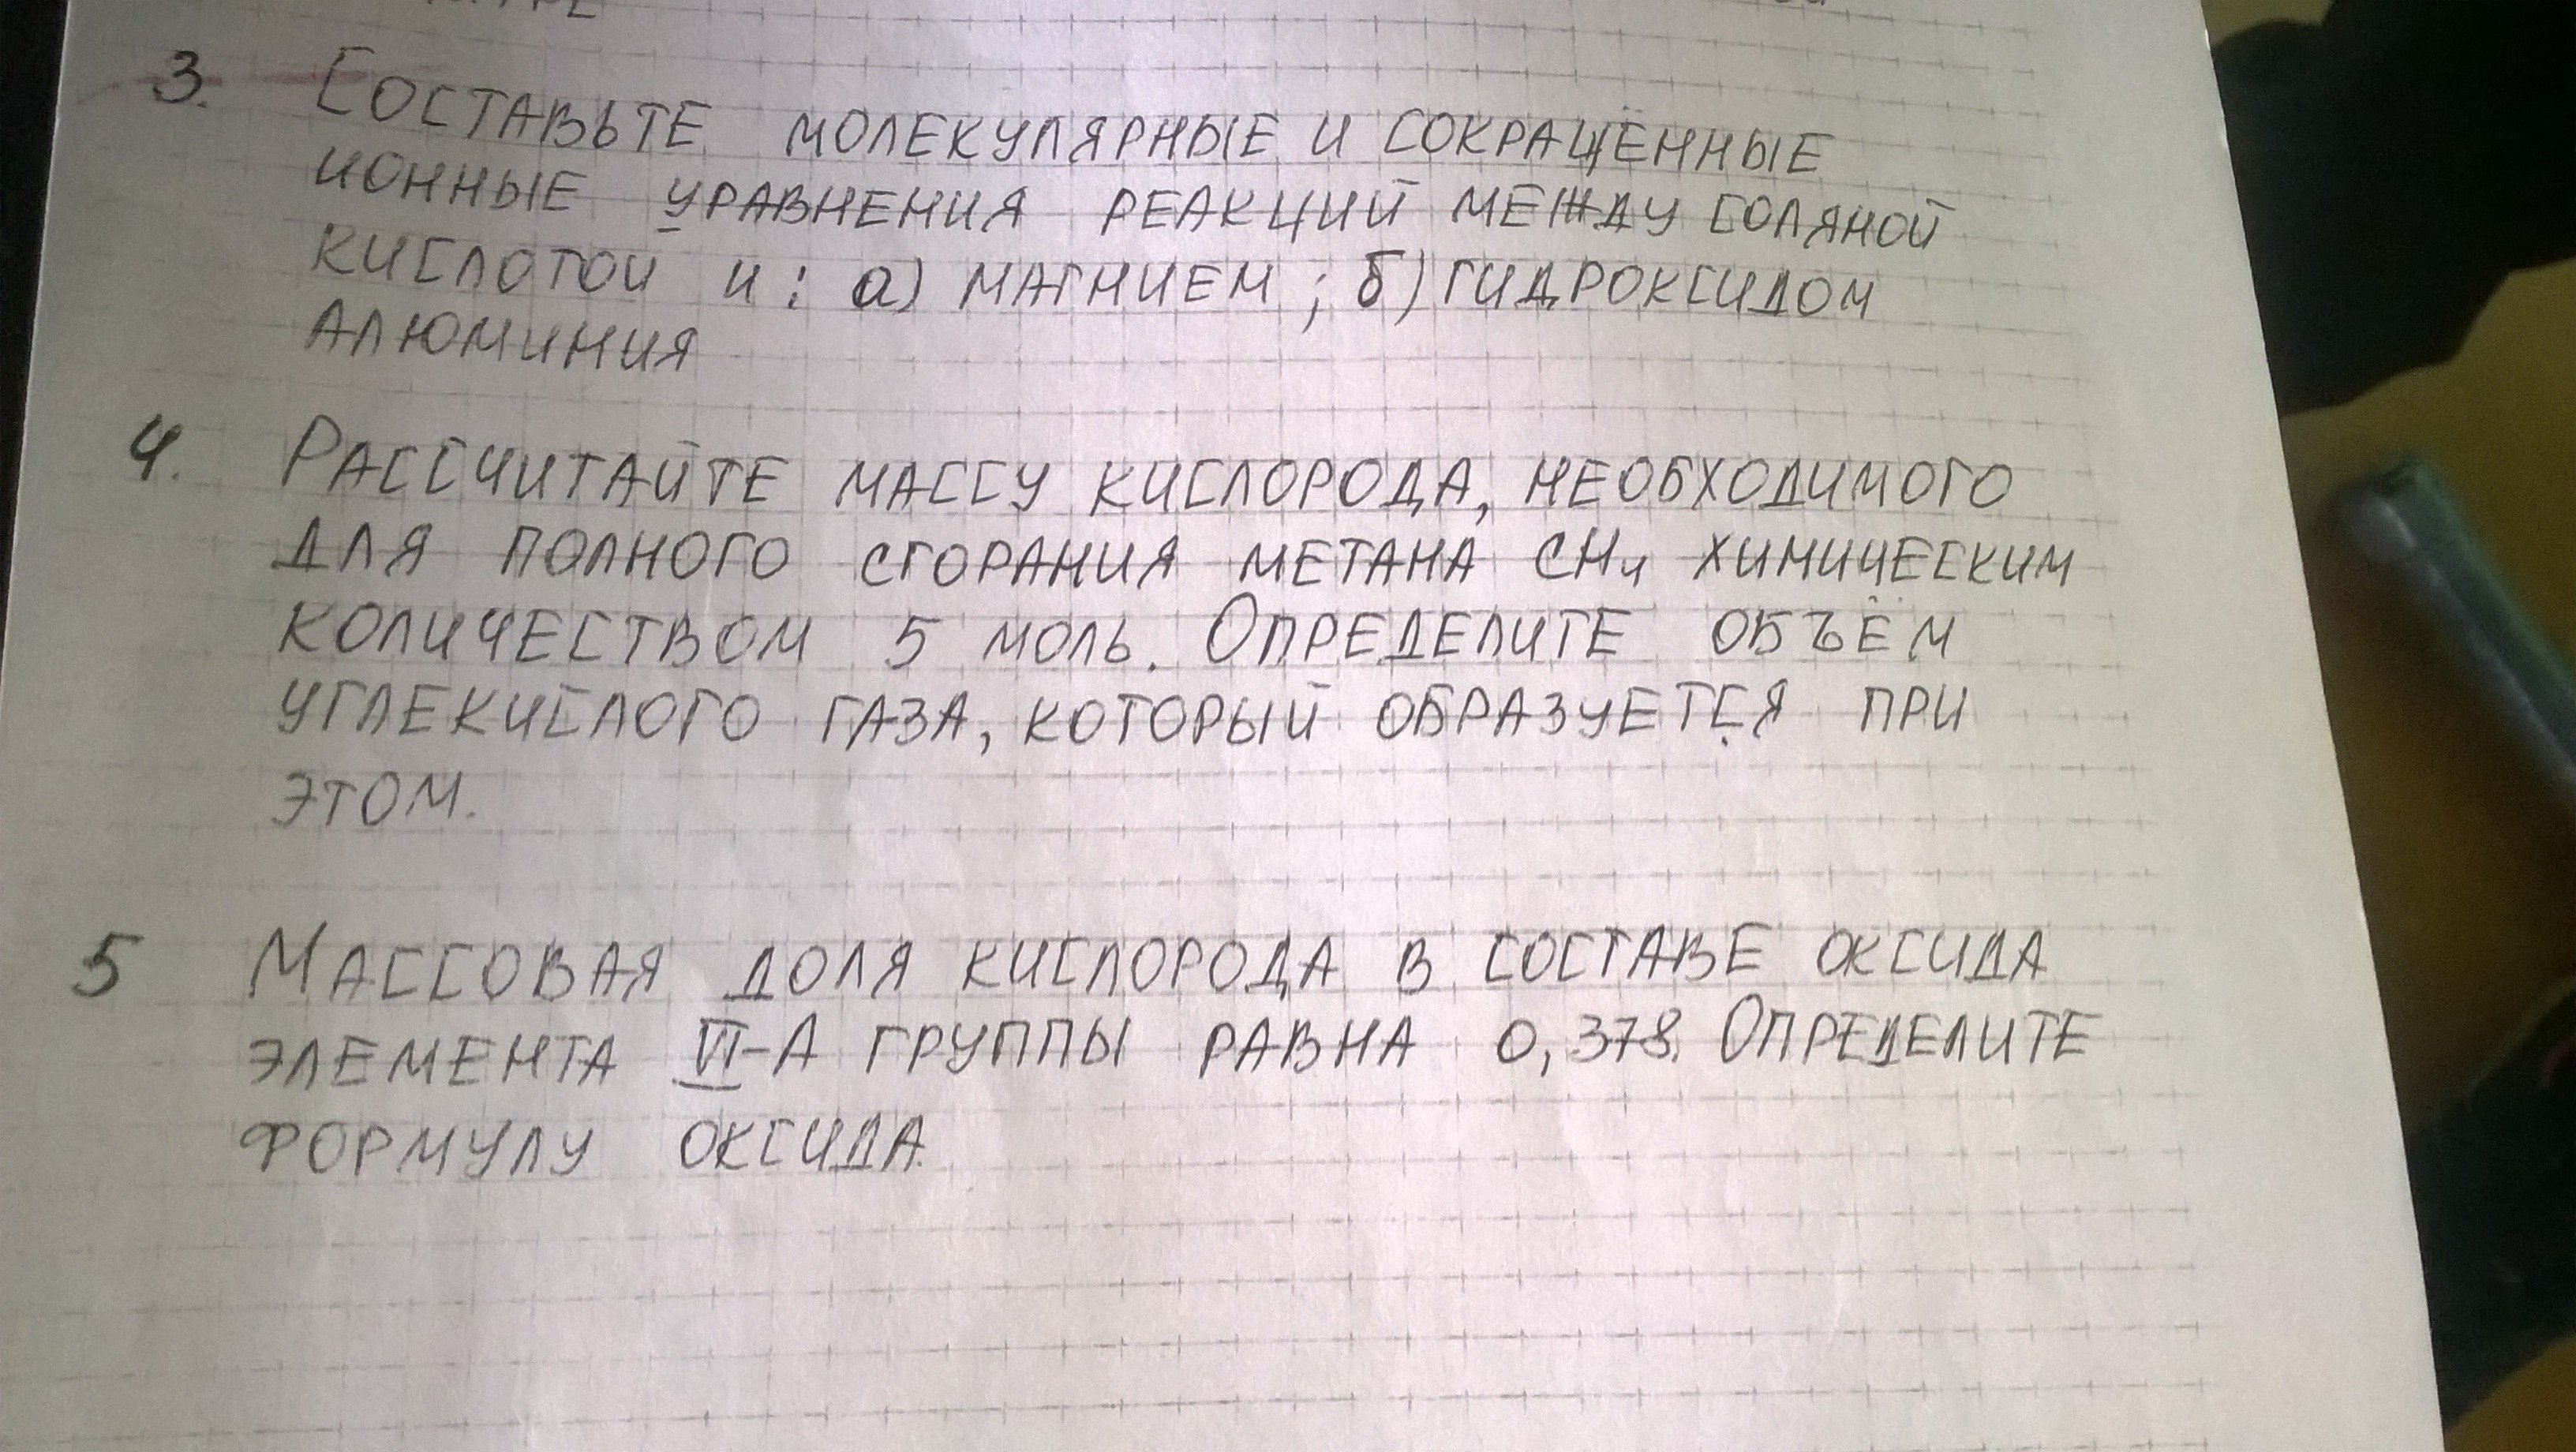 3. Составьте молекулярные и сокращённые
ионные уравнения реакций между соляной
кислотой и: а) магнием; б) гидроксидом
алюминия
4. Рассчитайте массу кислорода, необходимого
для полного сгорания метана CH₄ химическим
количеством 5 моль. Определите объём
углекислого газа, который образуется при
этом.
5 Массовая доля кислорода в составе оксида
элемента VI-А группы равна 0,378. Определите
формулу оксида.